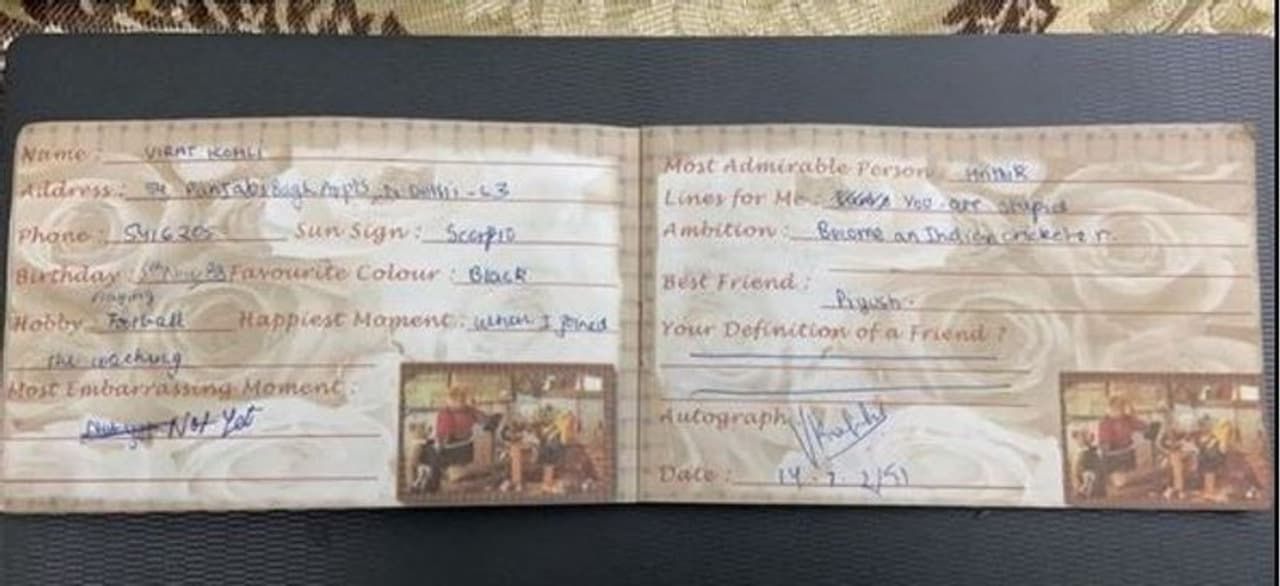 Name : VIRAT KOHLI
Address : 54 Punjabi Bagh Appts, N. Delhi - 63
Phone : 5416205 Sun Sign : Scorpio
Birthday : 5th Favourite Colour : Black
playing
Hobby Football Happiest Moment : when I joined
the coaching
Most Embarrassing Moment :
Not Yet
Most Admirable Person :
Lines for Me : You are stupid
Ambition : Become an Indian cricketer.
Best Friend :
Piyush.
Your Definition of a Friend ?
Autograph
Date : 14